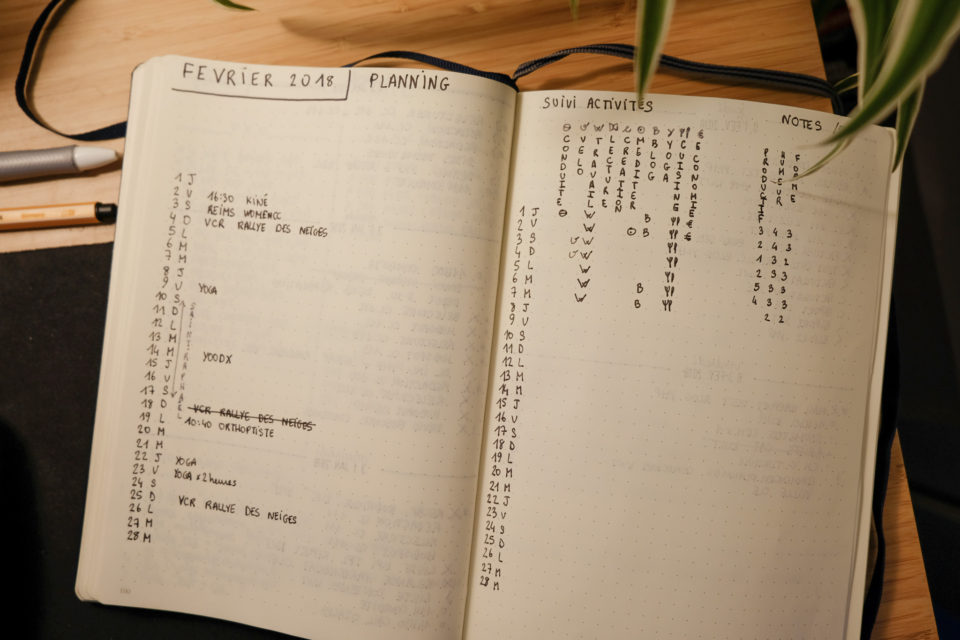 FEVRIER 2018 PLANNING
1 J
2 V 16:30 KINÉ
3 S REIMS WOMENCC
4 D VCR RALLYE DES NEIGES
5 L
6 M
7 M
8 J
9 V YOGA
10 S
11 D
12 L
13 M
14 M YOODX
15 J
16 V
17 S
SAINT RAPHAEL
18 D VCR RALLYE DES NEIGES
19 L 10:40 ORTHOPTISTE
20 M
21 M
22 J YOGA
23 V YOGA x 2heures
24 S
25 D VCR RALLYE DES NEIGES
26 L
27 M
28 M
SUIVI ACTIVITÉS
NOTES /
CONDUITE
VELO
W TRAVAIL
LECTURE
CREATION
MÉDITER
B BLOG
Y YOGA
CUISINE
€ ECONOMIE
PRODUCTIF
HUMEUR
FORME
1 J W B € 3 4 3
2 V W B € 2 4 3
3 S W 1 3 2
4 D W 2 5 3
5 L W 5 3 3
6 M W B 4 3 3
7 M W B 2 2
8 J
9 V
10 S
11 D
12 L
13 M
14 M
15 J
16 V
17 S
18 D
19 L
20 M
21 M
22 J
23 V
24 S
25 D
26 L
27 M
28 M